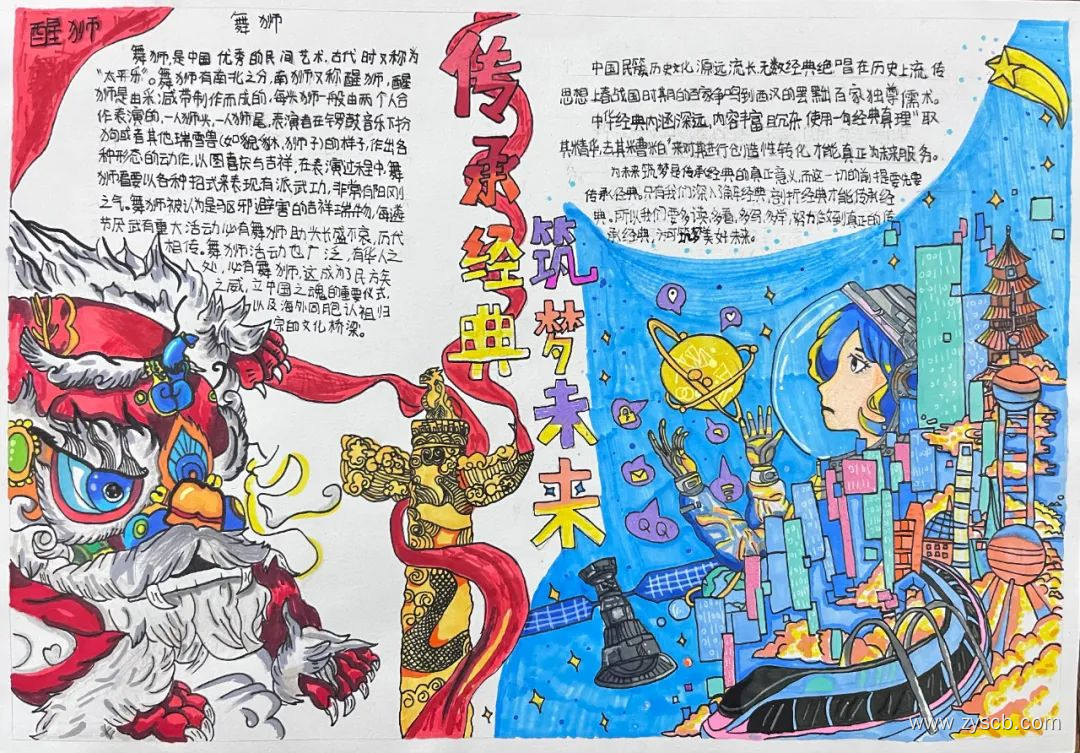 醒狮
舞狮
舞狮,是中国优秀的民间艺术,古代时又称为
"太平乐"。舞狮有南北之分,南狮又称醒狮,醒
狮是由采,咸带制作而成的,每只狮一般由两个人合
作表演的,一人狮头,一人狮尾,表演者在锣鼓音乐下扮
狗或者其他瑞雪兽(如貔貅,狮子)的样子,作出各
种形态的动作,以图喜庆与吉祥,在表演过程中,舞
狮需要以各种招式来表现有派武功,非常有阳刚
之气。舞狮被认为是驱邪避害的吉祥瑞物,每逢
节庆或有重大活动必有舞狮助兴长盛不衰,历代
相传。舞狮活动也广泛,有华人之
处,必有舞狮,这成了民方矣
之威,立中国之魂的重要仪式,
以及海外同胞认祖归
宗的文化桥梁。
传承经典
筑梦未来
中国民族历史文化源远流长,无数经典绝唱在历史上流传
思想上春战国时期的百家争鸣到西汉的罢黜百家独尊儒术。
中华经典内涵深远,内容丰富且冗杂,使用一句经典真理"取
其精华,去其糟粕"来对其进行创造性转化,才能真正为未来服务。
为未来筑梦是传承经典的真正意义,而这一切的前提要先要
传承经典。只有我们深入了解经典,剖析经典才能传承经
典。所以我们要多读多看,多写多学,努力做到真正的传
承经典,方可筑梦美好未来。
QQ
www.zyscb.com